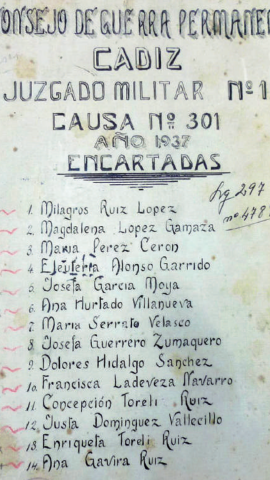 CONSEJO DE GUERRA PERMANE
CADIZ
JUZGADO MILITAR Nº 1
CAUSA Nº 301
AÑO 1937
ENCARTADAS
Lg 297
nº 478
1. Milagros Ruiz Lopez
2. Magdalena Lopez Gamaza
3. Maria Perez Ceron
4. Eleuteria Alonso Garrido
5. Josefa Garcia Moya
6. Ana Hurtado Villanueva
7. Maria Serrato Velasco
8. Josefa Guerrero Zumaquero
9. Dolores Hidalgo Sanchez
10. Francisca Ladeveza Navarro
11. Concepción Toreli Ruiz
12. Justa Dominguez Vallecillo
13. Enriqueta Toreli Ruiz
14. Ana Gavira Ruiz